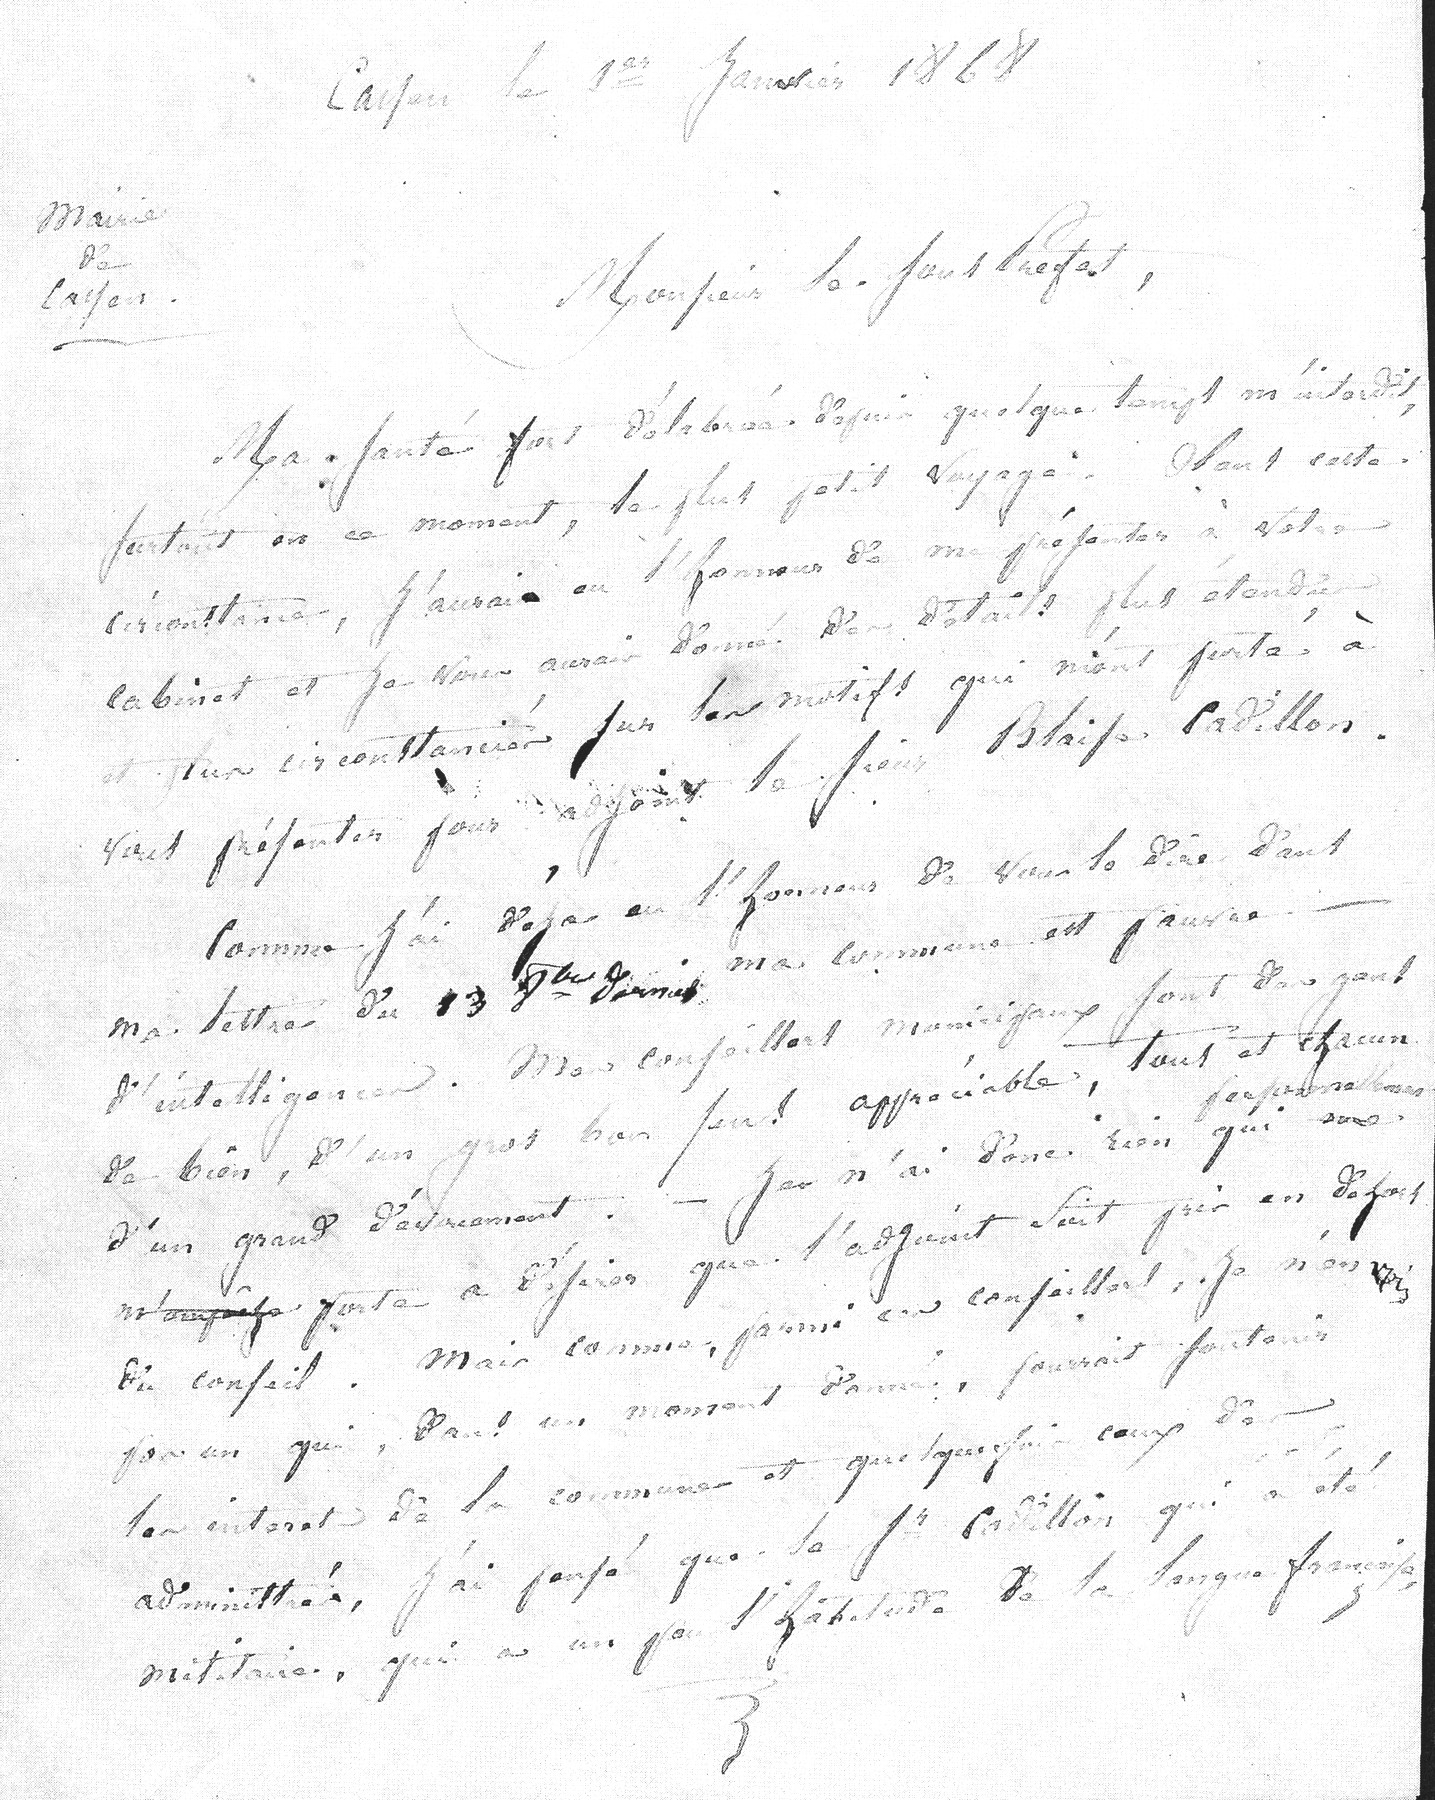 Cassen le 1er Janvier 1868
Mairie
de
Cassen.
Monsieur le Sous Prefet,
Ma santé fort délabrée depuis quelque temps m'interdit,
surtout en ce moment, le plus petit voyage. Sans cette
circonstance, j'aurais eu l'honneur de me présenter à votre
cabinet et je vous aurais donné des détails plus étendus
et plus circonstanciés sur les motifs qui m'ont porté à
vous présenter pour adjoint le sieur Blaise Cadillon.
Comme j'ai déja eu l'honneur de vous le dire dans
ma lettre du 13 Xbre dernier ma commune est pauvre
d'intelligences. Mes conseillers municipaux sont des gens
de bien, d'un gros bon sens appréciable, tous et chacun
d'un grand dévouement. – Je n'ai donc rien qui personnellement me
m'empêche porte a désirer que l'adjoint soit pris en dehors
du conseil. Mais comme, parmi ces conseillers, je n'en vois
pas un qui, dans un moment donné, pourrait soutenir
les interet de la commune et quelquefois ceux des
administrés, j'ai pensé que le Sr Cadillon qui a été
militaire, qui a un peu l'habitude de la langue française,